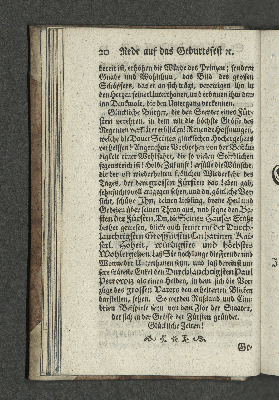 20 Rede auf das Geburtsfest ꝛc.
bereit ist, erhöhen die Würde des Prinzen; sondern
Gnade und Wohlthun, das Bild des grossen
Schöpfers, das er an sich trägt, verewigen ihn in
den Herzen seiner Unterthanen, und erbauen ihm dar-
inn Denkmale, die den Untergang verkennen.
Glückliche Bürger, die den Szepter eines Für-
sten verehren, in dem wir die höchste Größe des
Regenten werkthätig erblicken! Reizende Hoffnungen,
welche die Dauer Seines glücklichen Hochergehens
verheissen! Angenehme Vorboten von der Bestän-
digkeit einer Wohlfahrt, die so vielen Sterblichen
segensreich ist! Holde Zukunft! erfülle die Wünsche,
die der oft wiederholten festlichen Wiederkehr des
Tages, der den grossen Fürsten das Leben gab,
sehnsuchtsvoll entgegen sehen, und du göttliche Vor-
sicht, schütze Ihn, deinen Liebling, breite Heil und
Gedeien über seinen Thron aus, und segne den Be-
sten der Fürsten, Ihn, die Seinen Hauses Größe
bisher gewesen, blicke auch ferner rund der Durch-
lauchtigsten Großfürstin Catharinen, Kai-
serl. Hoheit, würdigstes und höchstes
Wohlergehen, laß Sie noch lange die Freude und
Wonne der Unterthanen seyn, und laß dereinst un-
sere späteste Enkel den Durchlauchtigsten Paul
Petrowiz als einen Helden, in dem sich die Vor-
züge des grossen Vaters den erheiterten Blicken
darstellen, sehen. So werden Rußland und Cim-
brien Beyspiele seyn von dem Flor der Staaten,
der sich in der Größe der Fürsten gründet.
Glückliche Zeiten!
Ge-